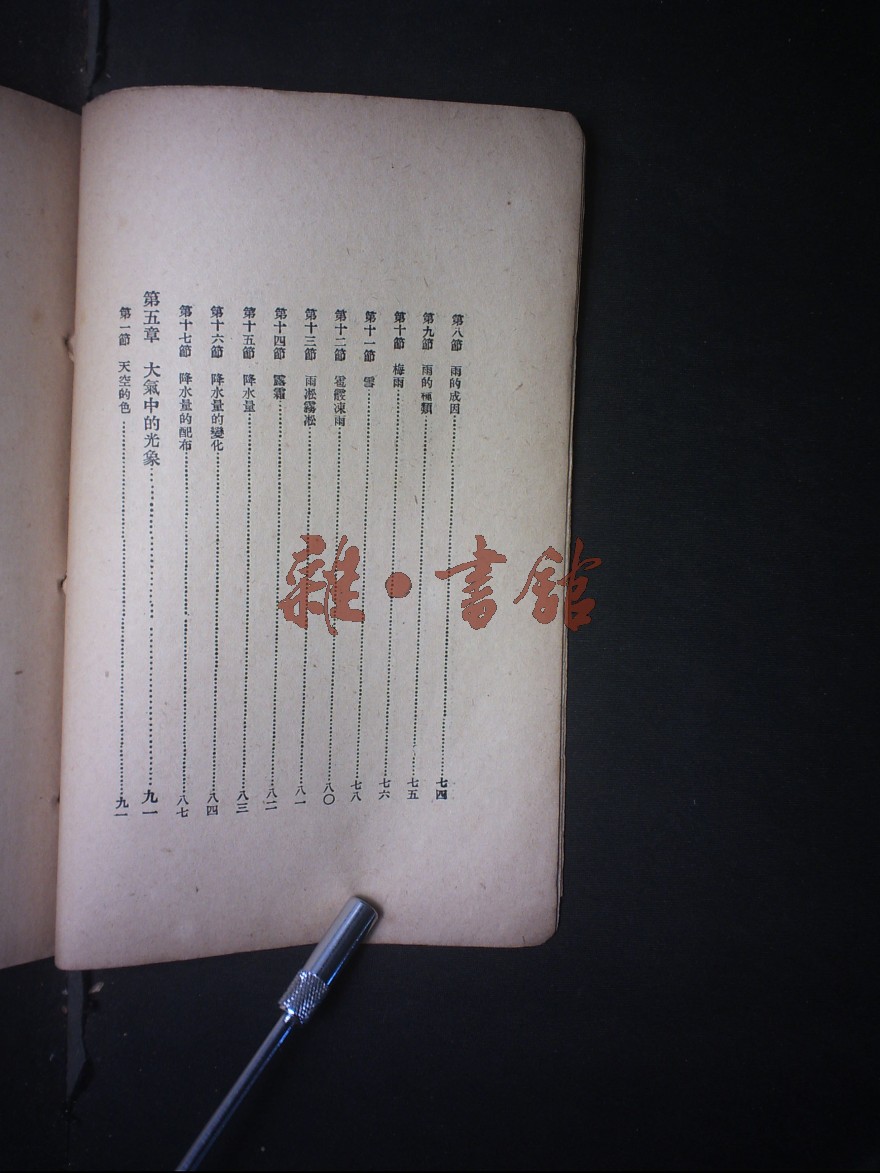 第八節　雨的成因……七四
第九節　雨的種類……七五
第十節　梅雨……七六
第十一節　雪……七八
第十二節　雹霰凍雨……八〇
第十三節　雨淞霧凇……八一
第十四節　露霜……八二
第十五節　降水量……八三
第十六節　降水量的變化……八四
第十七節　降水量的配布……八七
第五章　大氣中的光象……九一
第一節　天空的色……九一
雜·書館